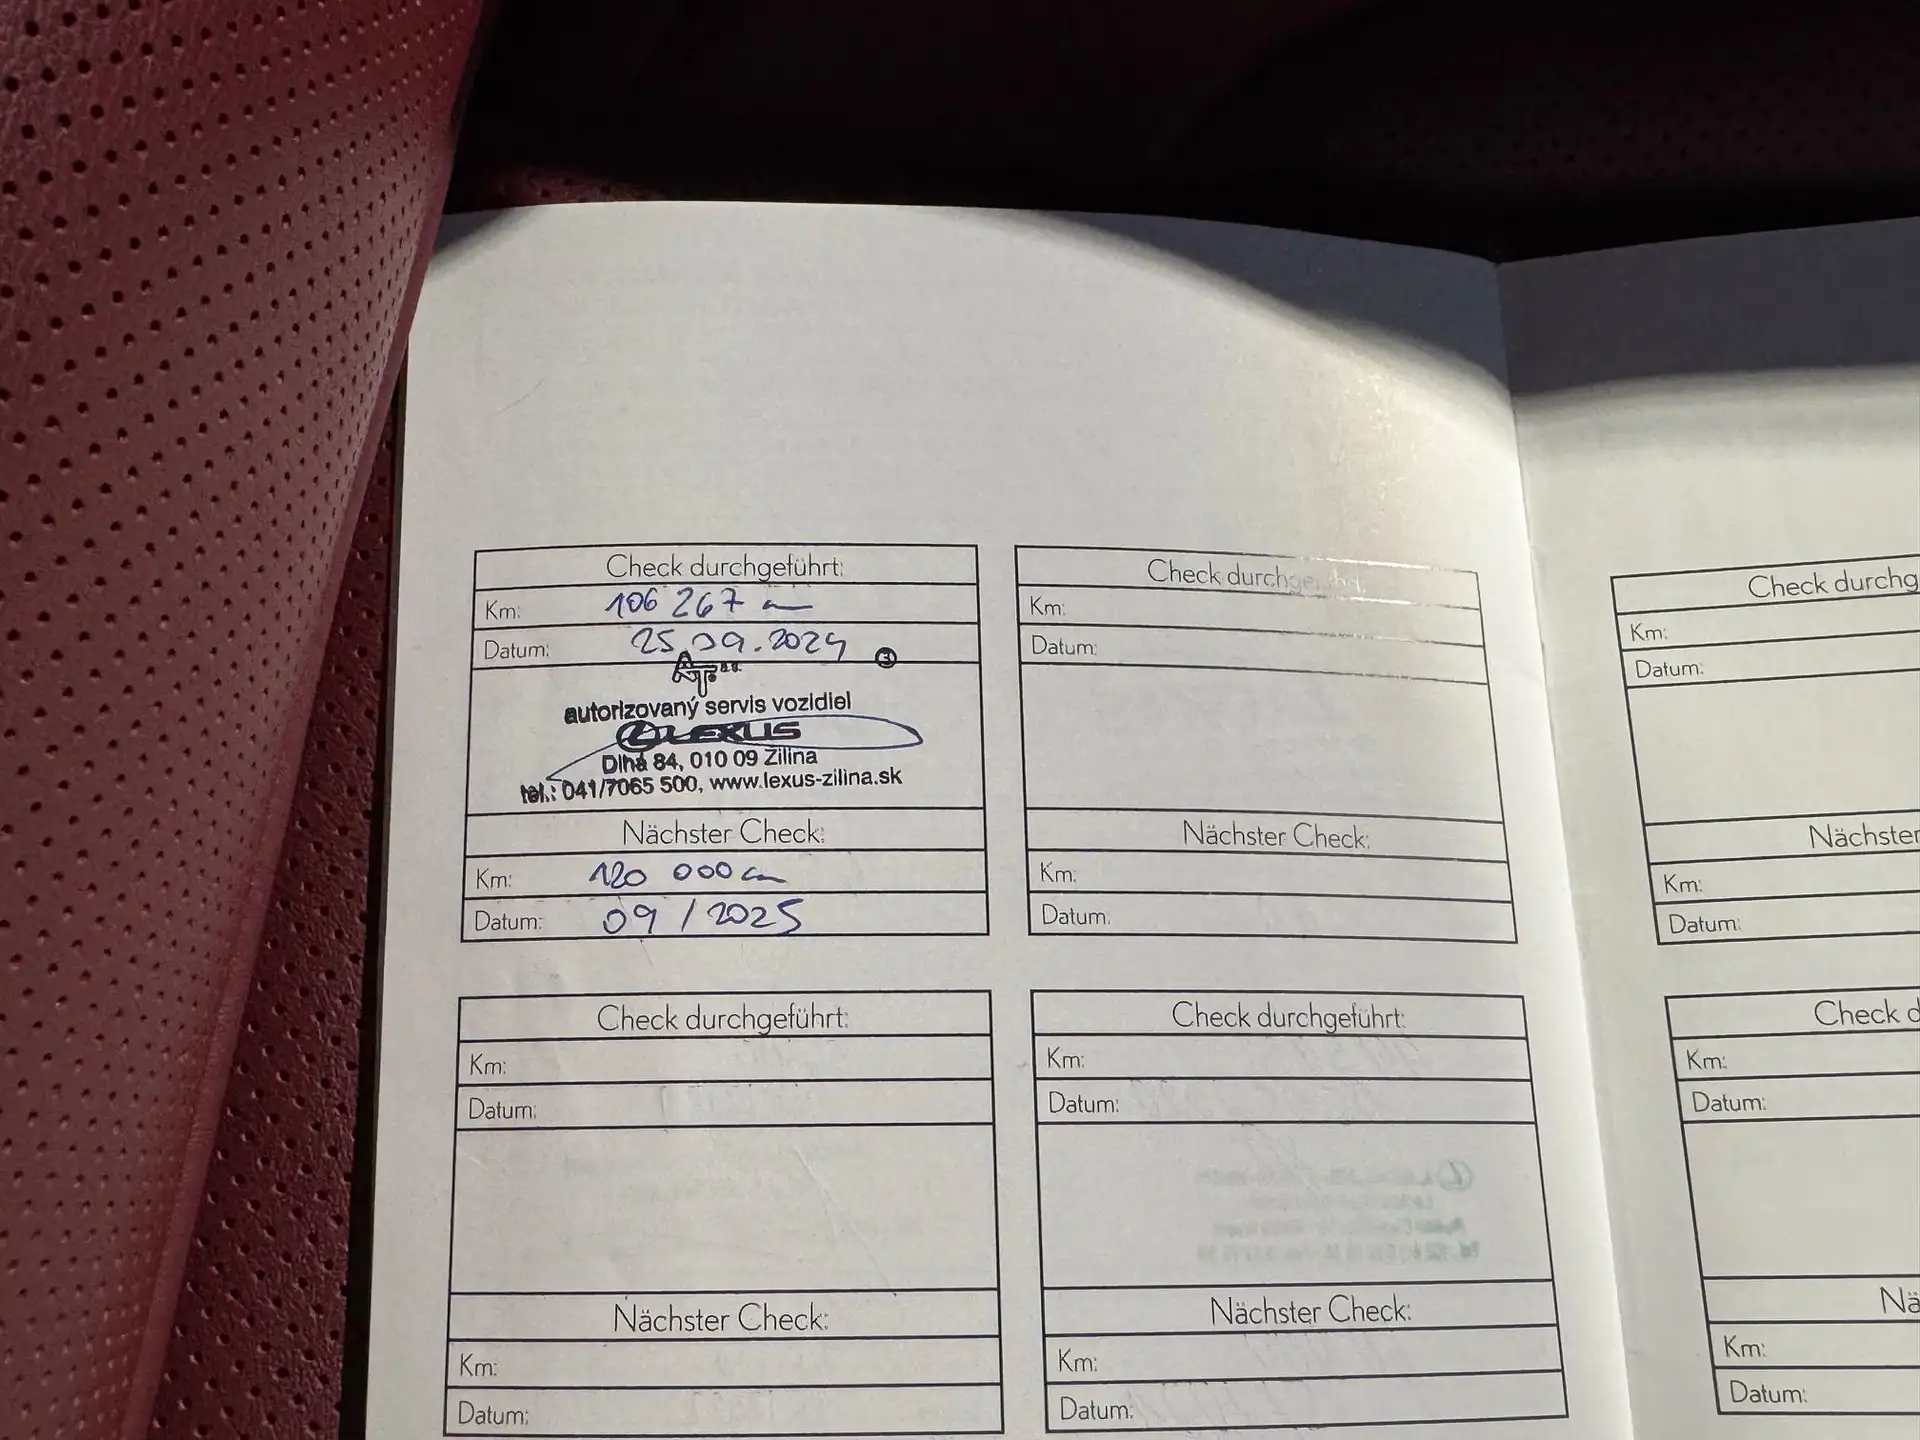 Check durchgeführt:
Km: 106 267
Datum: 25.09.2024
ATC a.s. 3
autorizovaný servis vozidiel
LEXUS
Dlhá 84, 010 09 Žilina
tel.: 041/7065 500, www.lexus-zilina.sk
Nächster Check:
Km: 120 000
Datum: 09/2025
Check durchgeführt:
Km:
Datum:
Nächster Check:
Km:
Datum:
Check durchgeführt:
Km:
Datum:
Nächster Check:
Km:
Datum:
Check durchgeführt:
Km:
Datum:
Nächster Check:
Km:
Datum:
Check durchg
Km:
Datum:
Nächster
Km:
Datum:
Check d
Km:
Datum:
Nä
Km:
Datum: